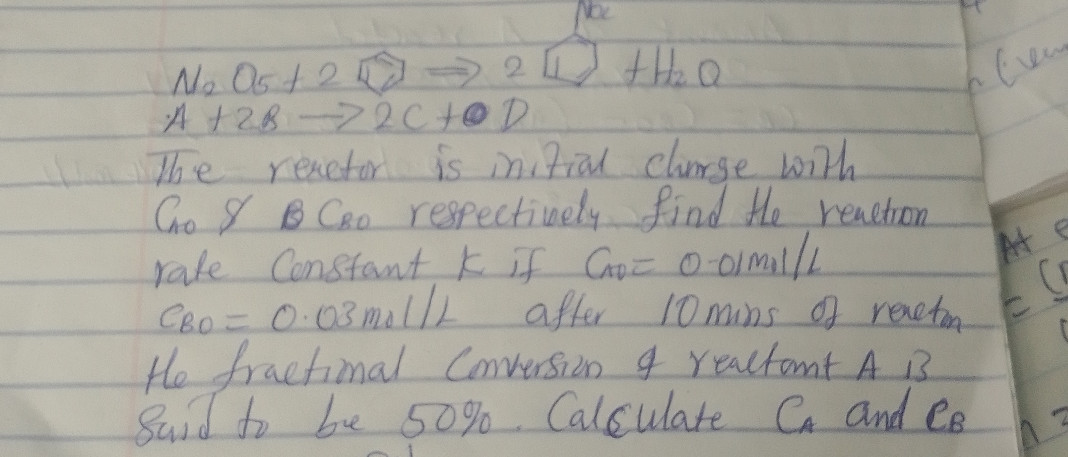 N₂O₅ + 2 ⇒ 2 + H₂O
A + 2B → 2C + D
The reactor is initial charge with
CAO & B CBO respectively find the reaction
rate Constant K if CAO = 0.01mol/L
CBO = 0.03mol/L after 10mins of reactn
the fractional Conversion of reactant A is
Said to be 50%. Calculate CA and CB